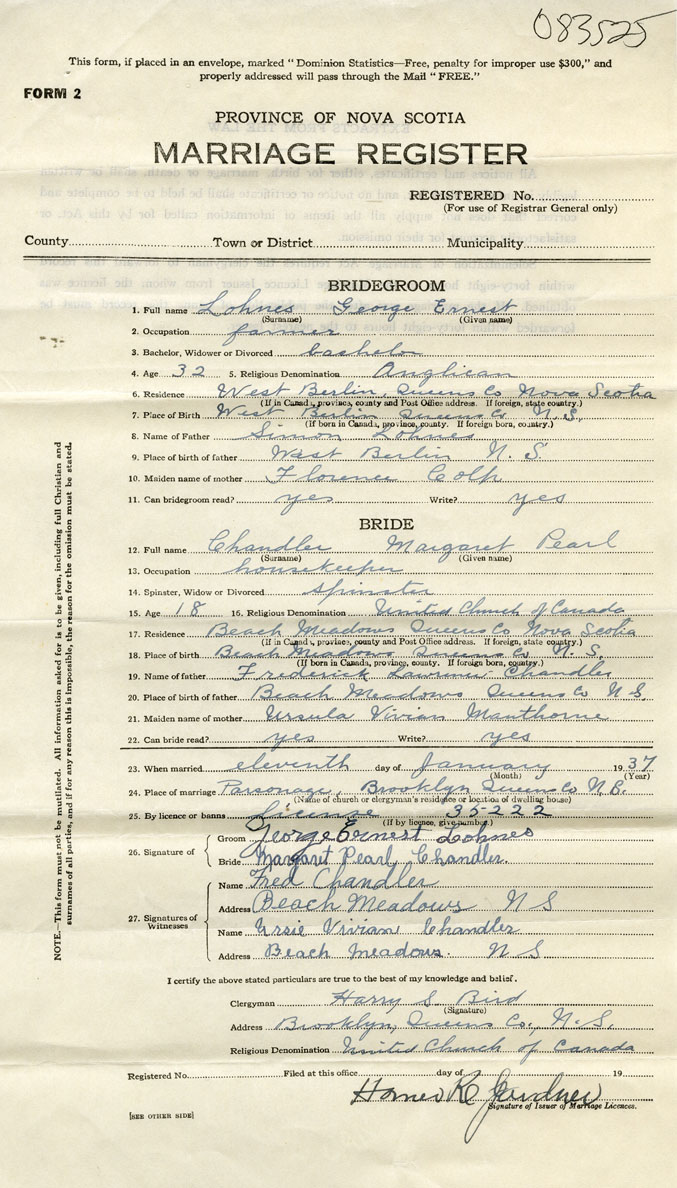 083525
This form, if placed in an envelope, marked "Dominion Statistics—Free, penalty for improper use $300," and
properly addressed will pass through the Mail "FREE."
FORM 2
PROVINCE OF NOVA SCOTIA
MARRIAGE REGISTER
REGISTERED No.
(For use of Registrar General only)
County Town or District Municipality
BRIDEGROOM
1. Full name Lohnes George Ernest
(Surname) (Given name)
2. Occupation farmer
3. Bachelor, Widower or Divorced bachelor
4. Age 32 5. Religious Denomination Anglican
6. Residence West Berlin, Queens Co Nova Scotia
(If in Canada, province, county and Post Office address. If foreign, state country.)
7. Place of Birth West Berlin Queens Co. N. S.
(If born in Canada, province, county. If foreign born, country.)
8. Name of Father Simon Lohnes
9. Place of birth of father West Berlin N. S
10. Maiden name of mother Florence Colp
11. Can bridegroom read? yes Write? yes
BRIDE
12. Full name Chandler Margaret Pearl
(Surname) (Given name)
13. Occupation housekeeper
14. Spinster, Widow or Divorced spinster
15. Age 18 16. Religious Denomination United Church of Canada
17. Residence Beach Meadows Queens Co Nova Scotia
(If in Canada, province, county and Post Office address. If foreign, state country.)
18. Place of birth Beach Meadows Queens Co N. S.
(If born in Canada, province, county. If foreign born, country.)
19. Name of father Frederick Lawrence Chandler
20. Place of birth of father Beach Meadows Queens Co N S
21. Maiden name of mother Ursula Vivian Manthorne
22. Can bride read? yes Write? yes
23. When married eleventh day of January 1937
(Month) (Year)
24. Place of marriage Parsonage, Brooklyn Queens Co N.S.
(Name of church or clergyman's residence or location of dwelling house)
25. By licence or banns License 35222
(If by licence, give number.)
26. Signature of
Groom George Ernest Lohnes
Bride Margaret Pearl Chandler.
27. Signatures of Witnesses
Name Fred Chandler
Address Beach Meadows N S
Name Ursie Vivian Chandler
Address Beach Meadows. N S
I certify the above stated particulars are true to the best of my knowledge and belief.
Clergyman Harry S. Bird
(Signature)
Address Brooklyn, Queens Co., N.S.
Religious Denomination United Church of Canada
Registered No. Filed at this office day of 19
Homer K Gardner
Signature of Issuer of Marriage Licences.
[SEE OTHER SIDE]
NOTE.—This form must not be mutilated. All information asked for is to be given, including full Christian and
surnames of all parties, and if for any reason this is impossible, the reason for the omission must be stated.